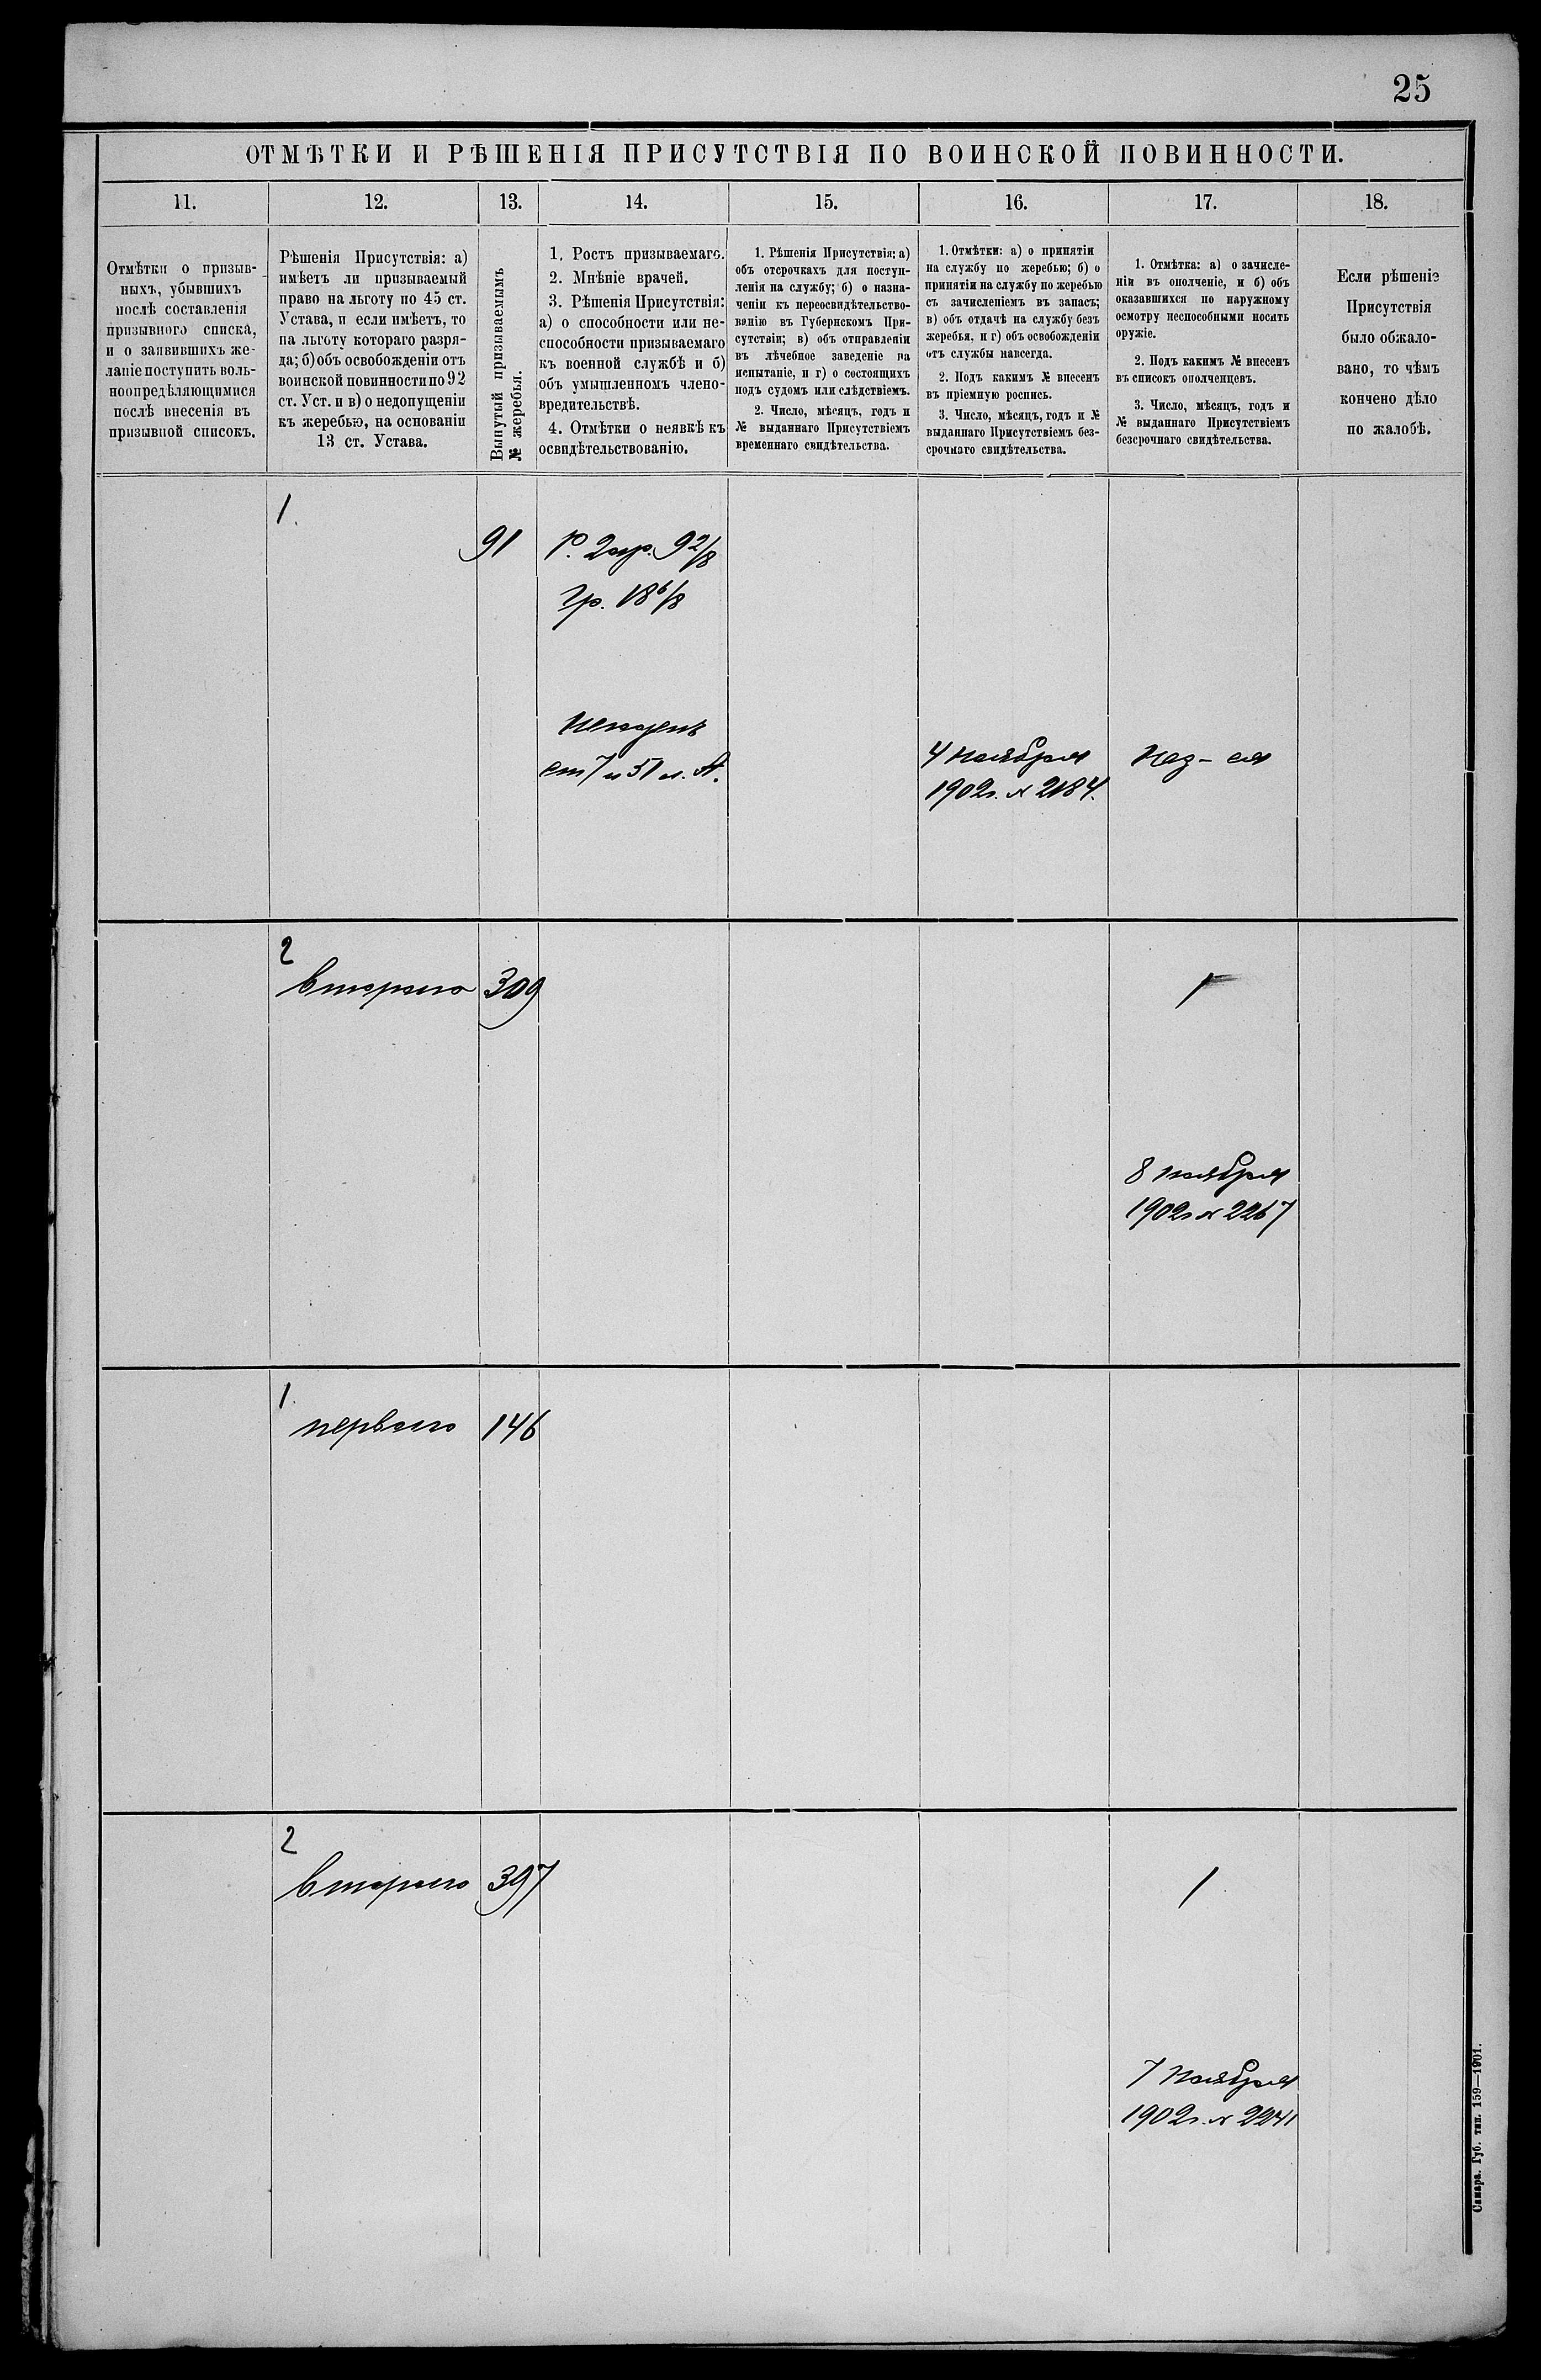 25
ОТМѢТКИ И РѢШЕНІЯ ПРИСУТСТВІЯ ПО ВОИНСКОЙ ПОВИННОСТИ.
11.
12.
13.
14.
15.
16.
17.
18.
Отмѣтки о призыв-
ныхъ, убывшихъ
послѣ составленія
призывного списка,
и о заявившихъ же-
ланіе поступить воль-
ноопредѣляющимися
послѣ внесенія въ
призывной списокъ.
Рѣшенія Присутствія: а)
имѣетъ ли призываемый
право на льготу по 45 ст.
Устава, и если имѣетъ, то
на льготу котораго разря-
да; б) объ освобожденіи отъ
воинской повинности по 92
ст. Уст. и в) о недопущеніи
къ жеребью, на основаніи
13 ст. Устава.
Вынутый призываемымъ
№ жеребья.
1. Ростъ призываемаго.
2. Мнѣніе врачей.
3. Рѣшенія Присутствія:
а) о способности или не-
способности призываемаго
къ военной службѣ и б)
объ умышленномъ члено-
вредительствѣ.
4. Отмѣтки о неявкѣ къ
освидѣтельствованію.
1. Рѣшенія Присутствія: а)
объ отсрочкахъ для поступ-
ленія на службу; б) о назна-
ченіи къ переосвидѣтельство-
ванію въ Губернскомъ При-
сутствіи; в) объ отправленіи
въ лѣчебное заведеніе на
испытаніе, и г) о состоящихъ
подъ судомъ или слѣдствіемъ.
2. Число, мѣсяцъ, годъ и
№ выданнаго Присутствіемъ
временнаго свидѣтельства.
1. Отмѣтки: а) о принятіи
на службу по жеребью; б) о
принятіи на службу по жеребью
съ зачисленіемъ въ запасъ;
в) объ отдачѣ на службу безъ
жеребья, и г) объ освобожденіи
отъ службы навсегда.
2. Подъ какимъ № внесенъ
въ пріемную роспись.
3. Число, мѣсяцъ, годъ и №
выданнаго Присутствіемъ без-
срочнаго свидѣтельства.
1. Отмѣтка: а) о зачисле-
ніи въ ополченіе, и б) объ
оказавшихся по наружному
осмотру неспособными носить
оружіе.
2. Подъ какимъ № внесенъ
въ списокъ ополченцевъ.
3. Число, мѣсяцъ, годъ и
№ выданнаго Присутствіемъ
безсрочнаго свидѣтельства.
Если рѣшеніе
Присутствія
было обжало-
вано, то чѣмъ
кончено дѣло
по жалобѣ.
1.
91
Р. 2 ар. 9 2/8
Гр. 18 6/8
Негоденъ
ст 7 и 51 л. А.
4 Ноября
1902г. № 2184.
2
второго
309
1
8 ноября
1902г № 2267
1.
первого
146
2
второго
397
1
7 Ноября
1902г. № 2241
Самара. Губ. тип. 159—1901.